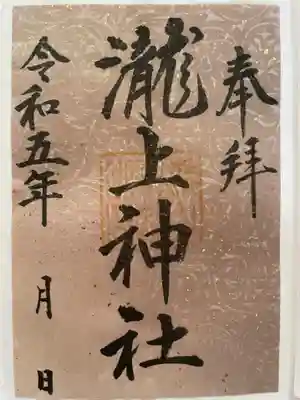 奉拝
瀧上神社
令和五年 月 日